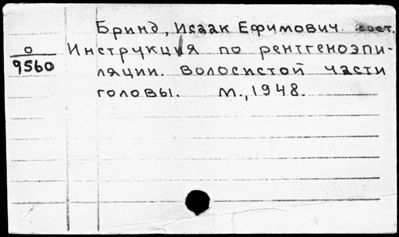 Бринд, Исаак Ефимович сост.
О
9560
Инструкция по рентгеноэпи-
ляции. волосистой части
головы. М., 1948.